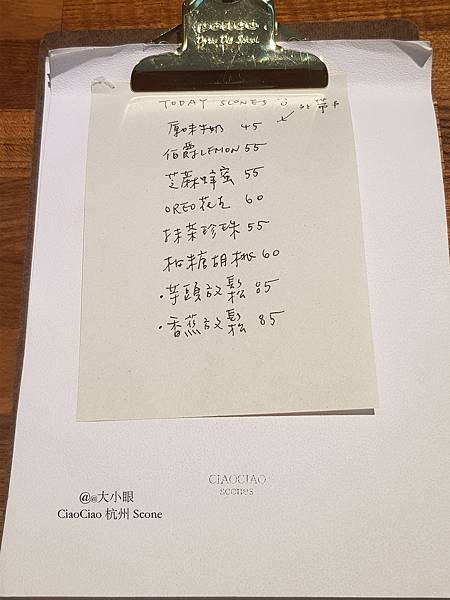 TODAY SCONES
外帶
原味牛奶 45
伯爵LEMON 55
芝蔴蜂蜜 55
OREO花生 60
抹茶珍珠 55
糖胡桃 60
·芋頭放鬆 85
·香蕉放鬆 85
CIAOCIAO
scones
@@大小眼
CiaoCiao 杭州 Scone